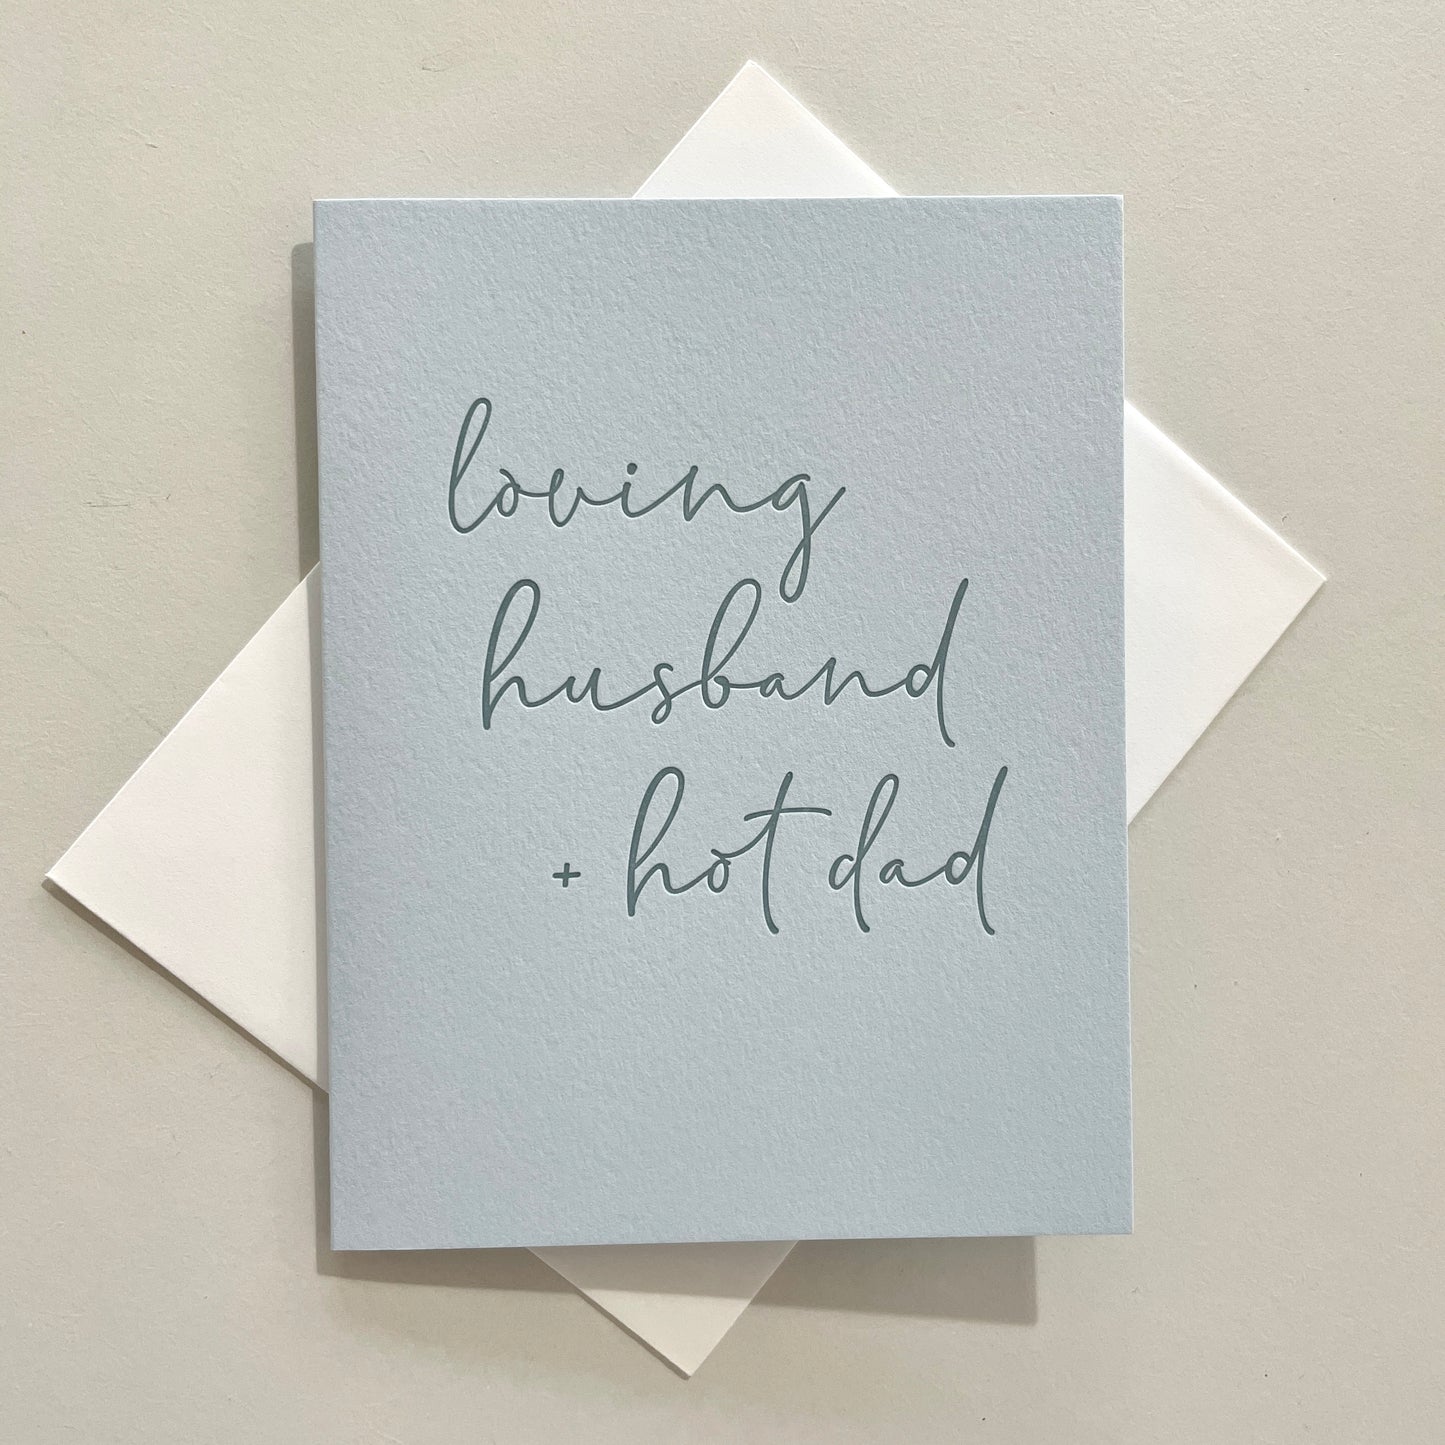 loving
husband
+ hot dad